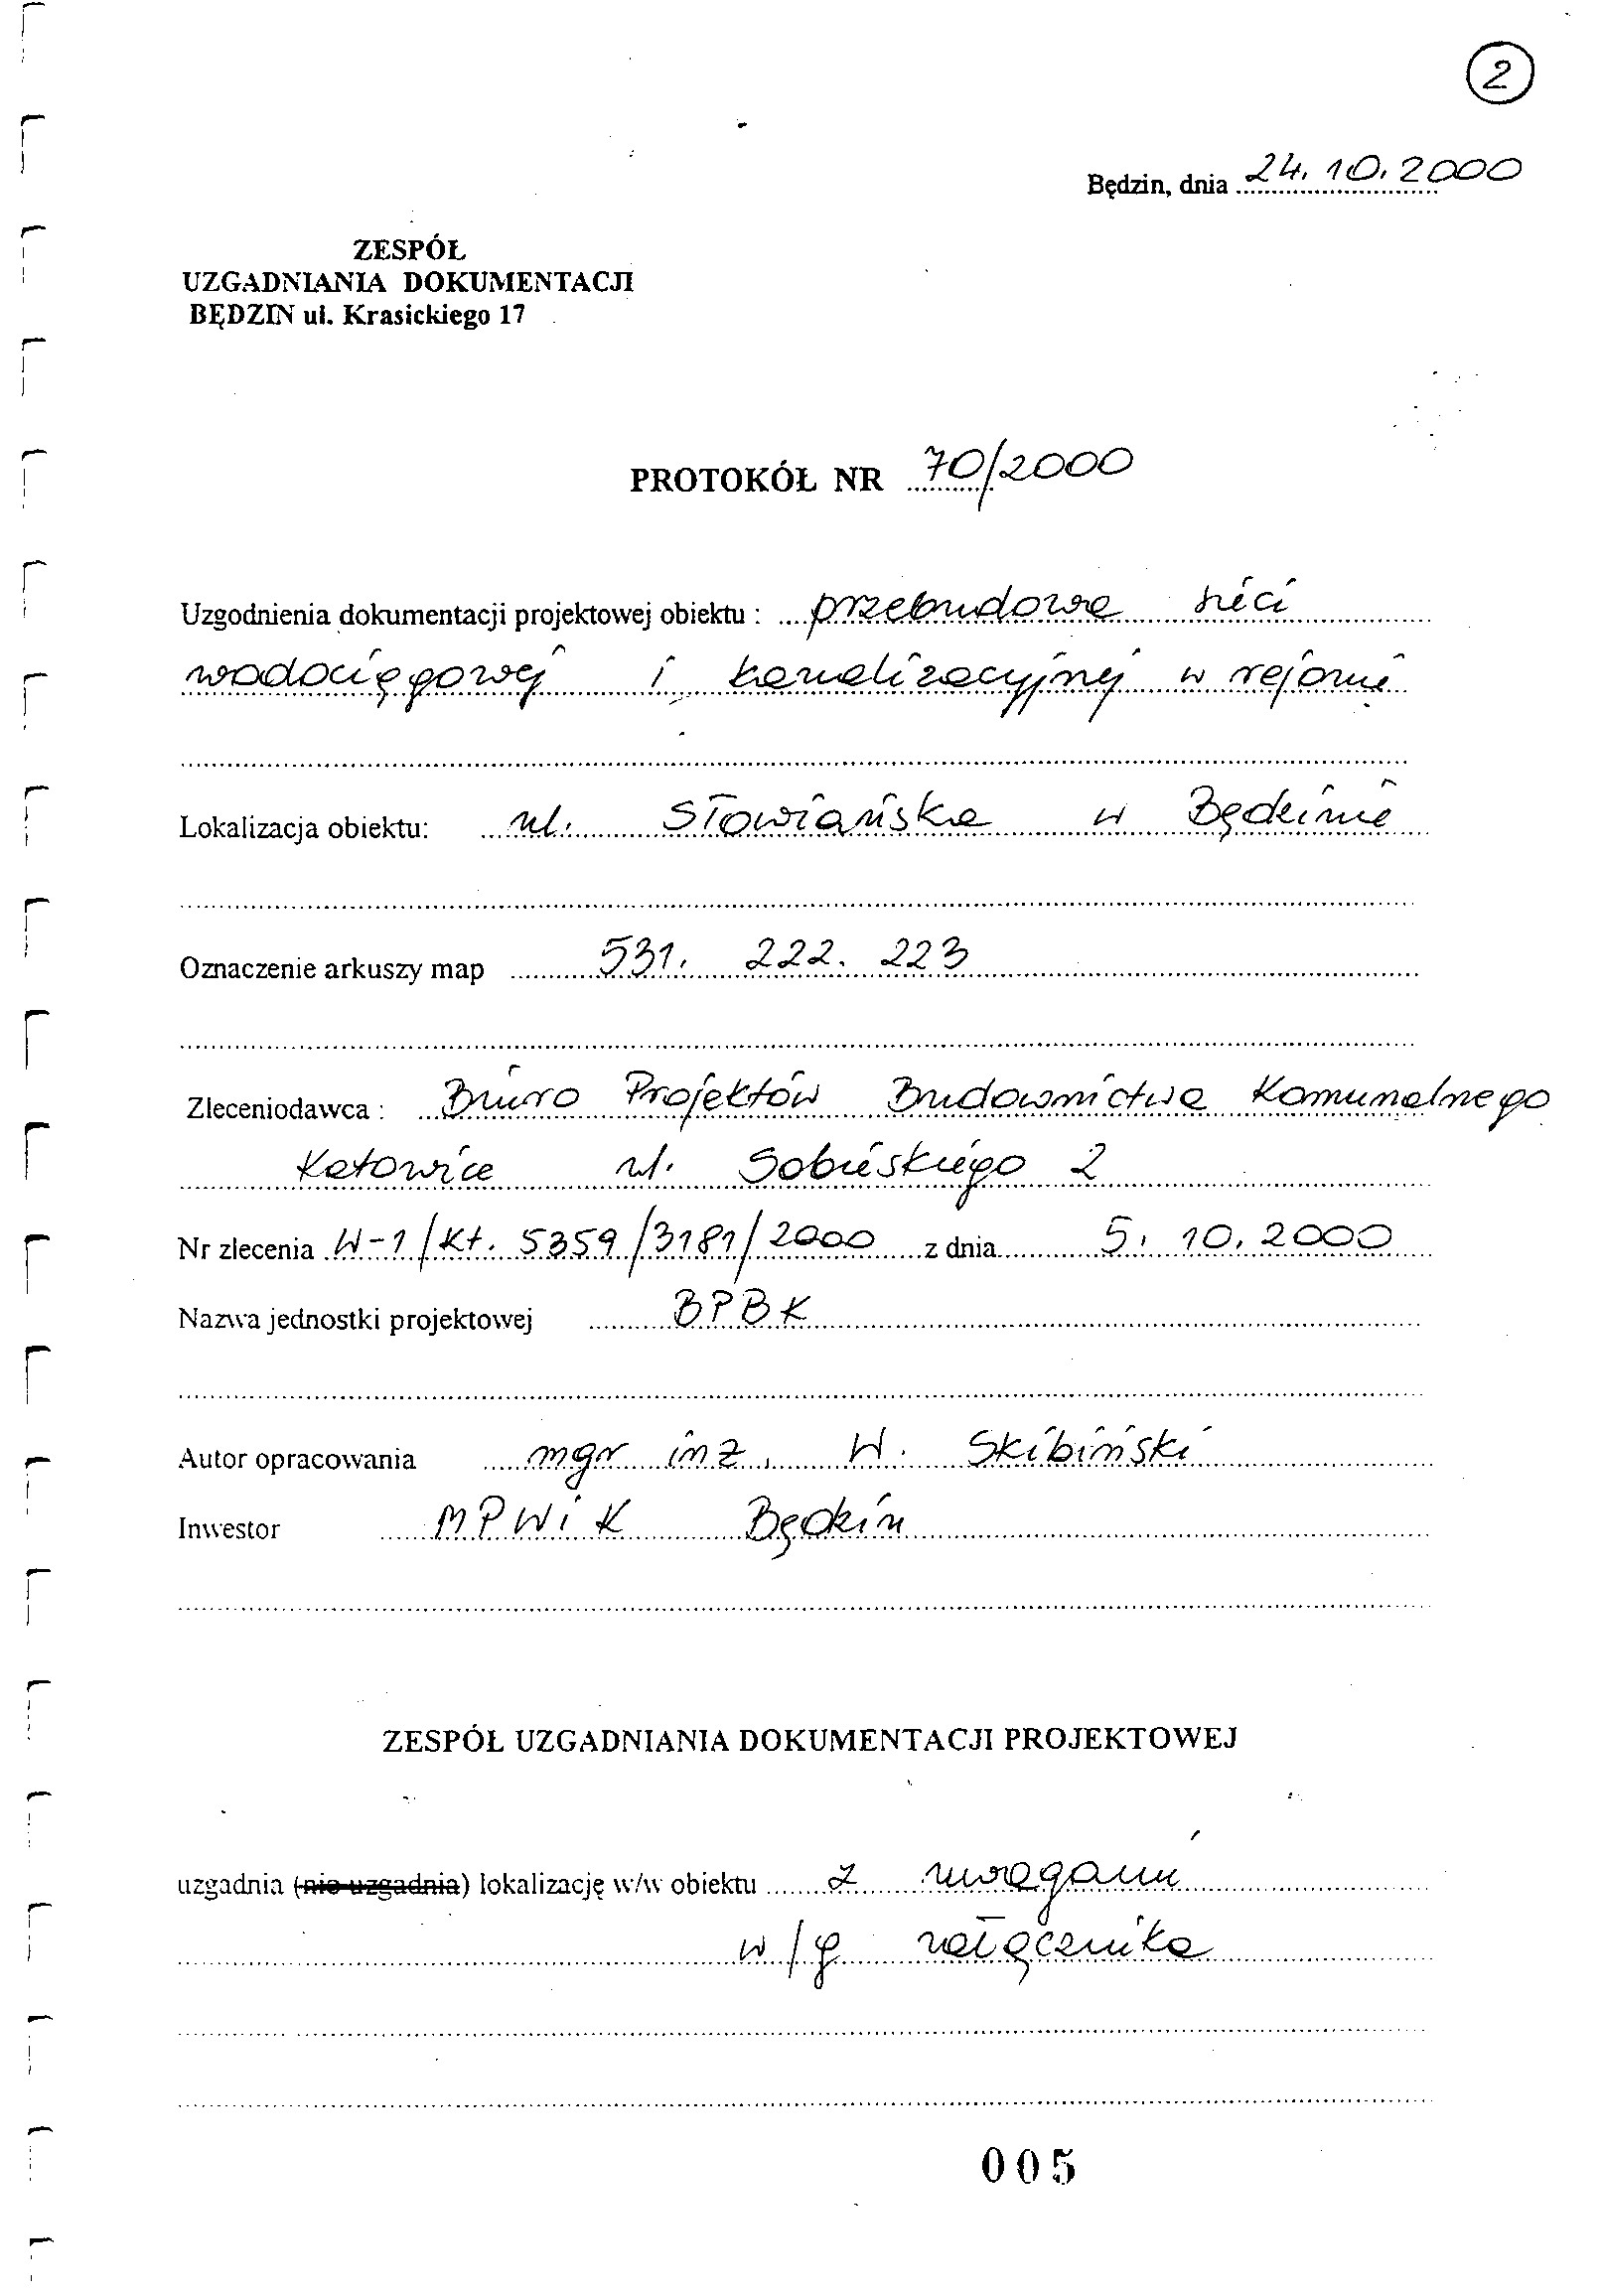 2
Będzin, dnia 24.10.2000
ZESPÓŁ
UZGADNIANIA DOKUMENTACJI
BĘDZIN ul. Krasickiego 17
PROTOKÓŁ NR 70/2000
Uzgodnienia dokumentacji projektowej obiektu : przebudowa sieci
wodociągowej i kanalizacyjnej w rejonie
Lokalizacja obiektu: ul. Słowiańska w Będzinie
Oznaczenie arkuszy map 531. 222. 223
Zleceniodawca : Biuro Projektów Budownictwa Komunalnego
Katowice ul. Sobieskiego 2
Nr zlecenia W-1/Kt. 5359/3181/2000 z dnia 5. 10. 2000
Nazwa jednostki projektowej BPBK
Autor opracowania mgr inż. W. Skibiński
Inwestor MPWiK Będzin
ZESPÓŁ UZGADNIANIA DOKUMENTACJI PROJEKTOWEJ
uzgadnia (nie uzgadnia) lokalizację w/w obiektu z uwagami
w/g załącznika
005